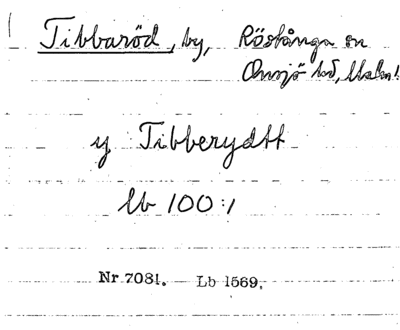 Tibbaröd, by, Röstånga sn
Onsjö hd, Malm.
y Tibberydtt
lb 100:1
Nr 7081. Lb 1569.